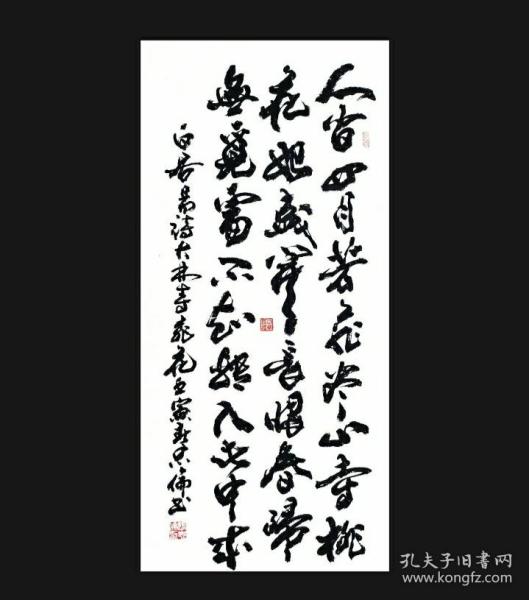 人間四月芳菲尽山寺桃
花始盛開長恨春歸
無覓處不知轉入此中來
白居易詩大林寺桃花
孔夫子旧书网
www.kongfz.com